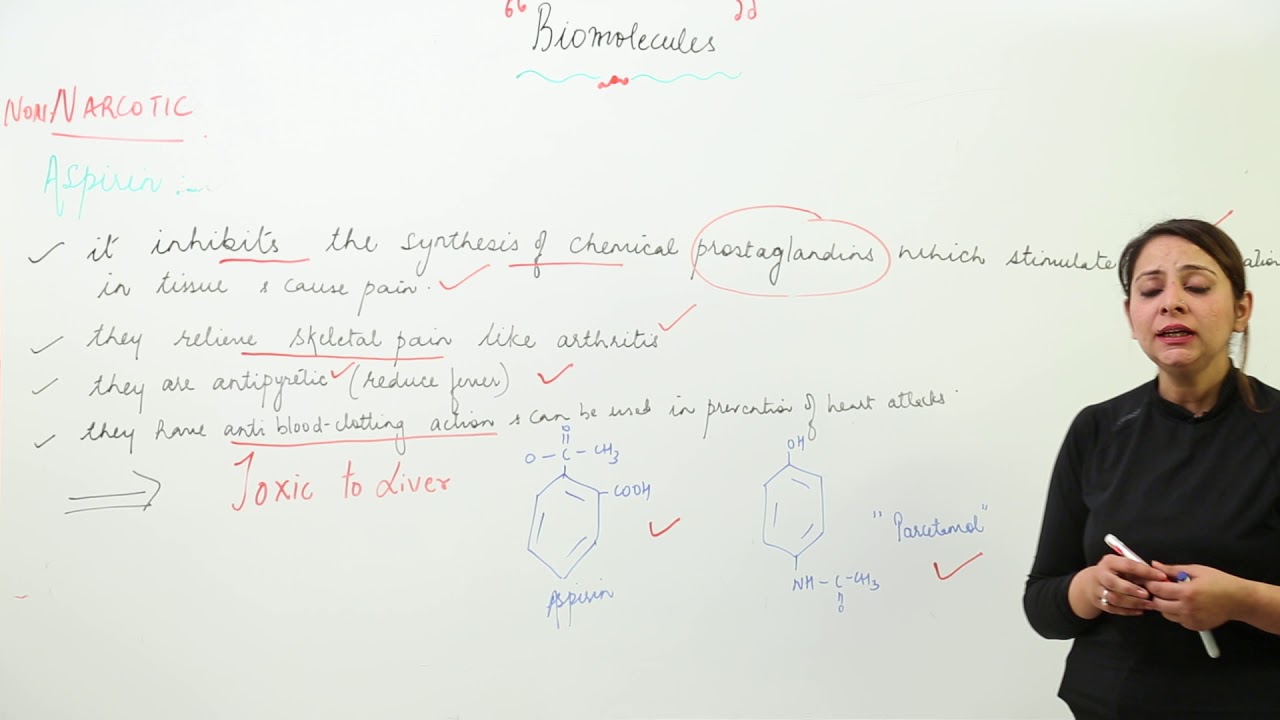 “ Biomolecules ”
NON NARCOTIC
Aspirin :-
it inhibits the synthesis of chemical prostaglandins which stimulate
in tissue & cause pain.
they relieve skeletal pain like arthritis
they are antipyretic (reduce fever)
they have anti blood-clotting action & can be used in prevention of heart attacks.
Toxic to Liver
O
O - C - CH3
COOH
Aspirin
OH
"Parcetamol"
NH - C - CH3
O